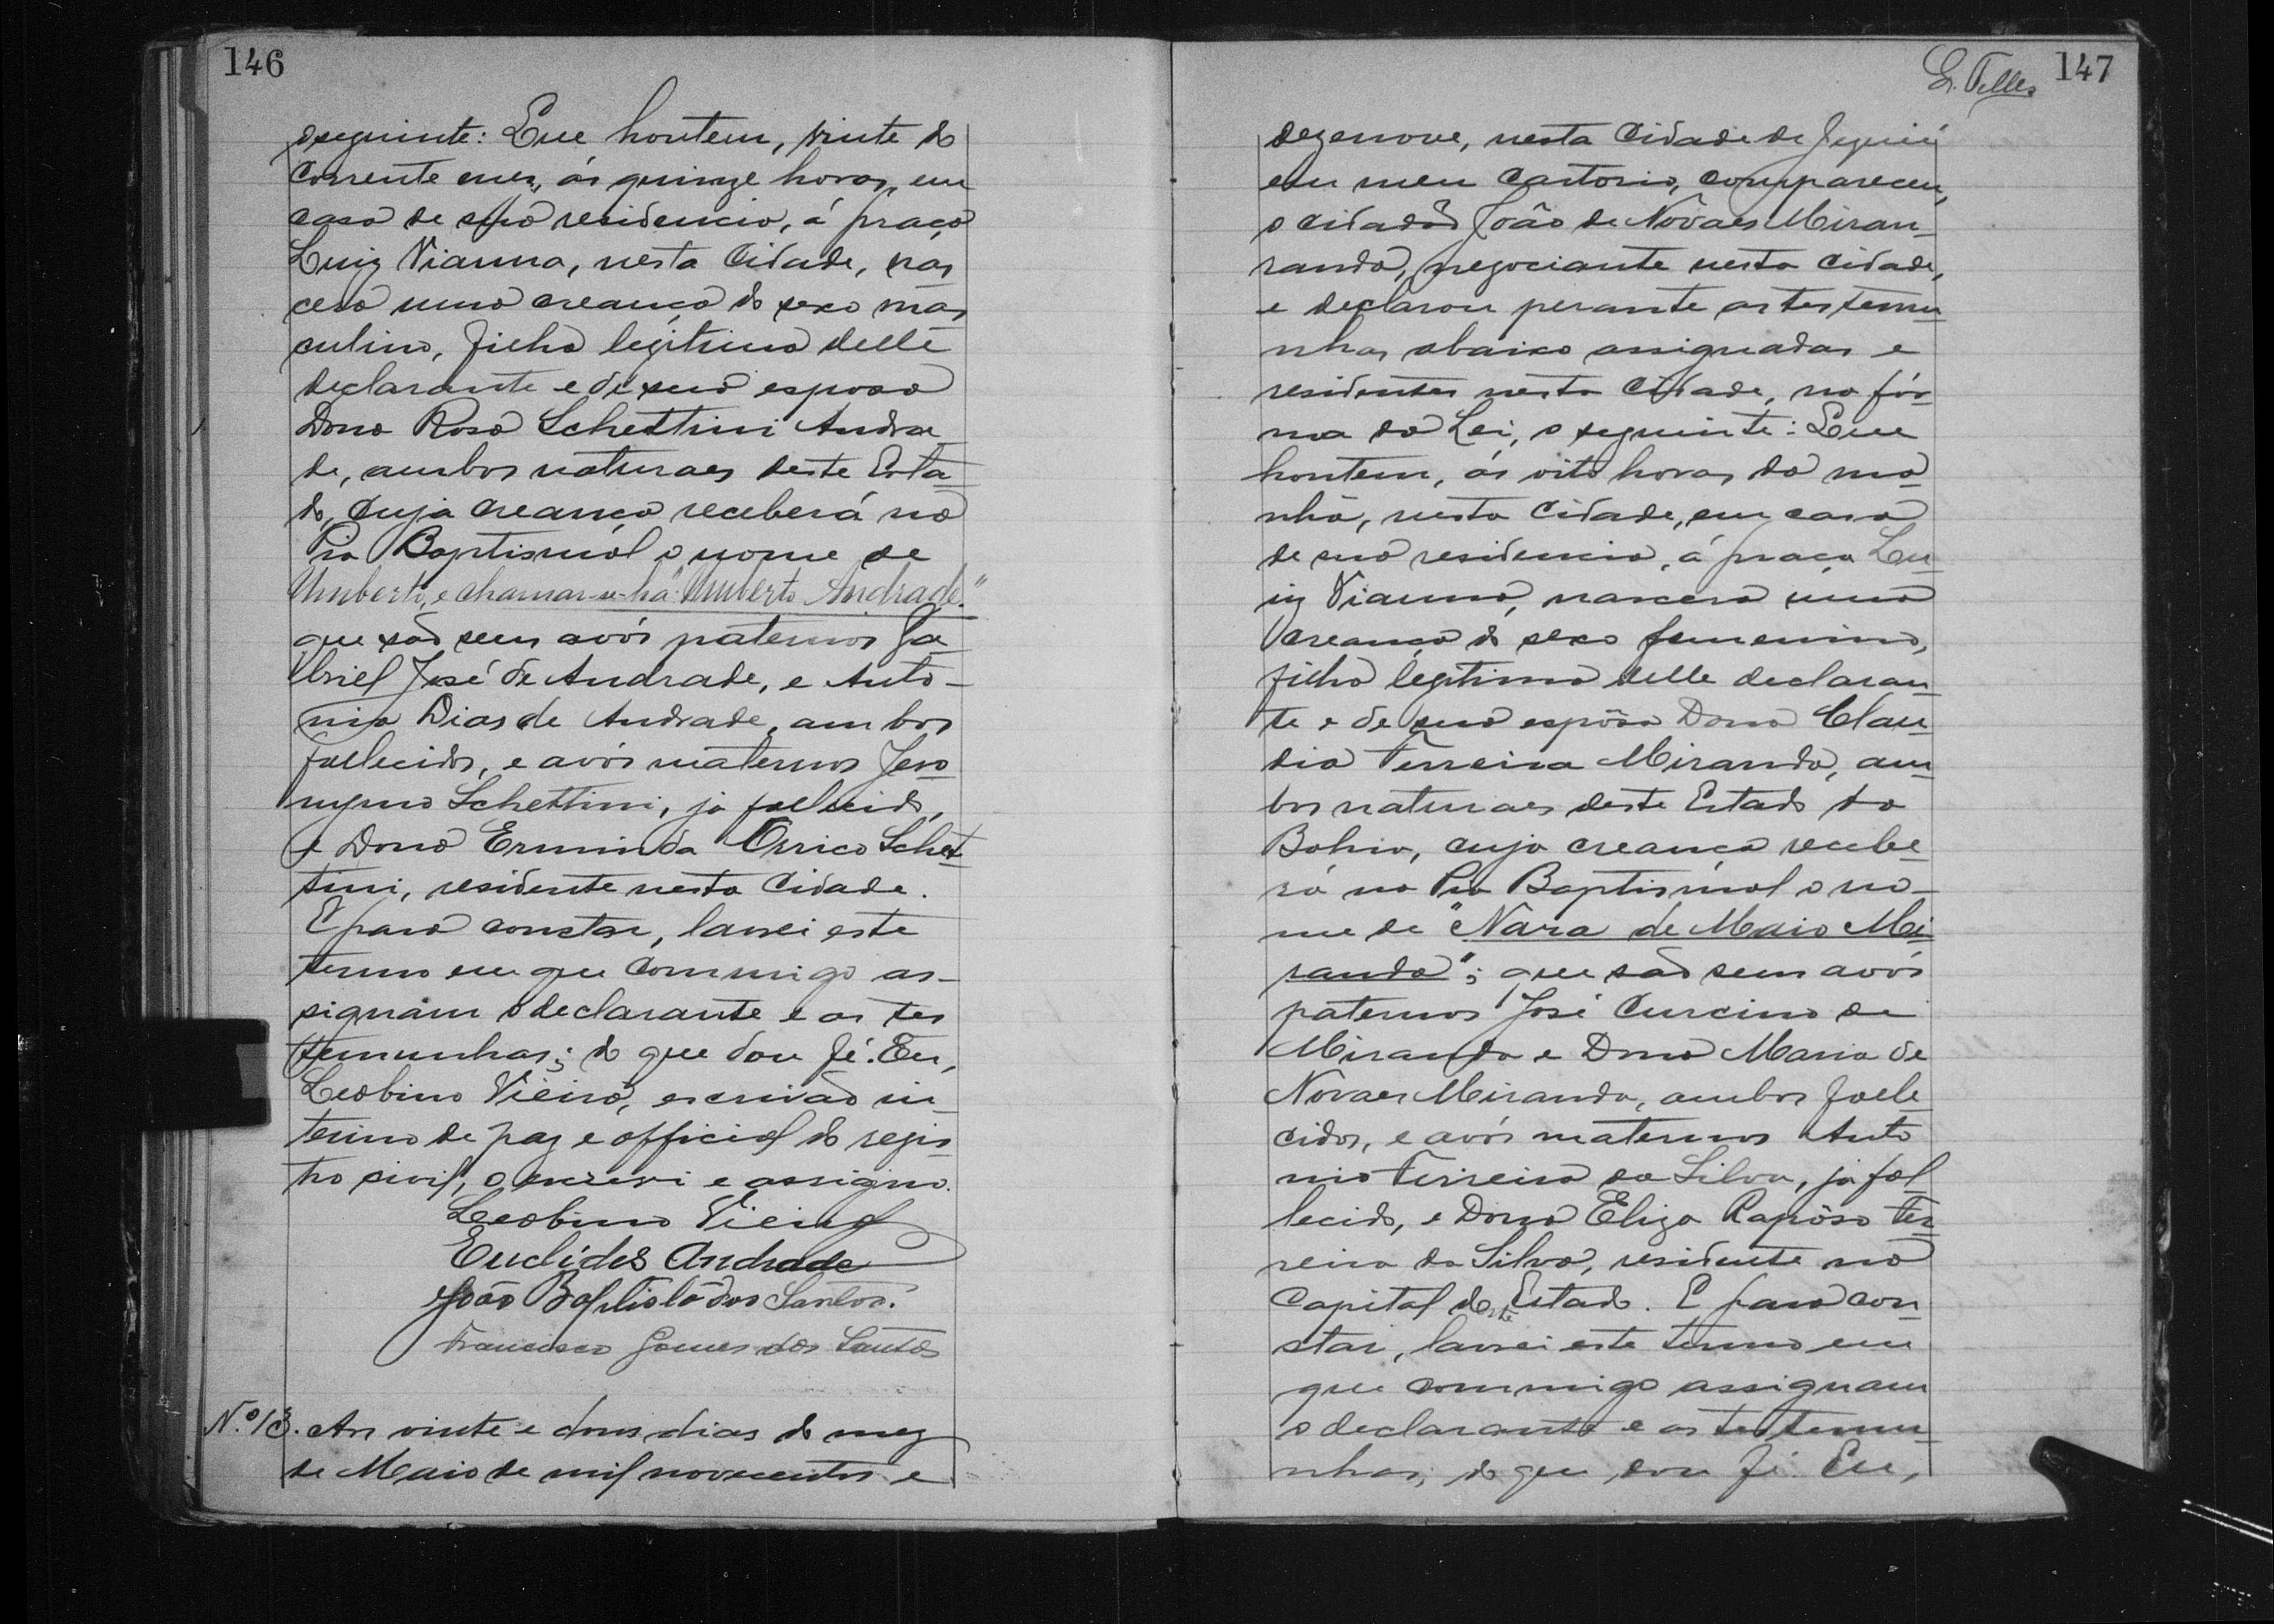 146
o seguinte: Que hontem, vinte do
corrente mez, ás quinze horas, em
casa de sua residencia, á praça
Luiz Vianna, nesta Cidade, nas
cera uma creança do sexo mas
culino, filho legitimo delle
declarante e de sua esposa
Dona Rosa Schettini Andra
de, ambos naturaes deste Esta
do, cuja creança receberá na
Pia Baptismal o nome de
Umberto, e chamar-se-há "Umberto Andrade."
que são seus avós paternos Ga
briel José de Andrade, e Anto-
nia Dias de Andrade, ambos
fallecidos, e avós maternos Jero
nymo Schettini, ja fallecido,
e Dona Erminda Orrico Schet
tini, residente nesta Cidade.
E para constar, lavrei este
termo em que commigo as-
signam o declarante e as tes
temunhas; do que dou fé. Eu,
Leobino Vieira, escrivão in
terino de paz e official do regis
tro civil, o escrevi e assigno.
Leobino Vieira
Euclides Andrade
João Baptista dos Santos.
Francisco Gomes dos Santos
N.º 13. Aos vinte e dous dias do mez
de Maio de mil novecentos e
147
L. Telles
dezenove, nesta Cidade de Jequié
em meu Cartorio, compareceu,
o cidadão João de Novaes Miran-
randa, negociante nesta cidade,
e declarou perante as testemu
nhas abaixo assignadas e
residentes nesta Cidade, na fór
ma da Lei, o seguinte: Que
hontem, ás oito horas da ma
nhã, nesta Cidade, em casa
de sua residencia, á praça Lu
iz Vianna, nascera uma
creança do sexo femenino,
filha legitima delle declaran
te e de sua espôsa Dona Clau
dia Ferreira Miranda, am
bos naturaes deste Estado da
Bahia, cuja creança recebe
rá na Pia Baptismal o no-
me de "Nara de Maio Mi
randa"; que são seus avós
paternos José Curcino de
Miranda e Dona Maria de
Novaes Miranda, ambos falle
cidos, e avós maternos Anto
nio Ferreira da Silva, ja fal
lecido, e Dona Eliza Rapôso Fer
reira da Silva, residente na
Capital deste Estado. E para con
star, lavrei este termo em
que commigo assignam
o declarante e as testemu
nhas; do que dou fé. Eu,